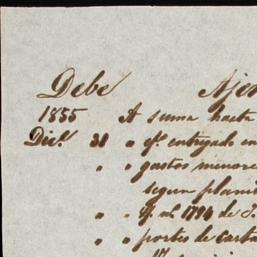 Debe
1855 A suma hasta
Dic.e 30 " ef. entregado en
" " gastos menore
segun plani
" " f. al 1794 de J.
" " portes de carta